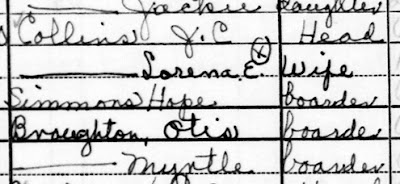 — Jackie daughter
Collins J.C Head
— Lorena E. (X) Wife
Simmons Hope boarder
Broughton, Otis boarder
— Myrtle boarder